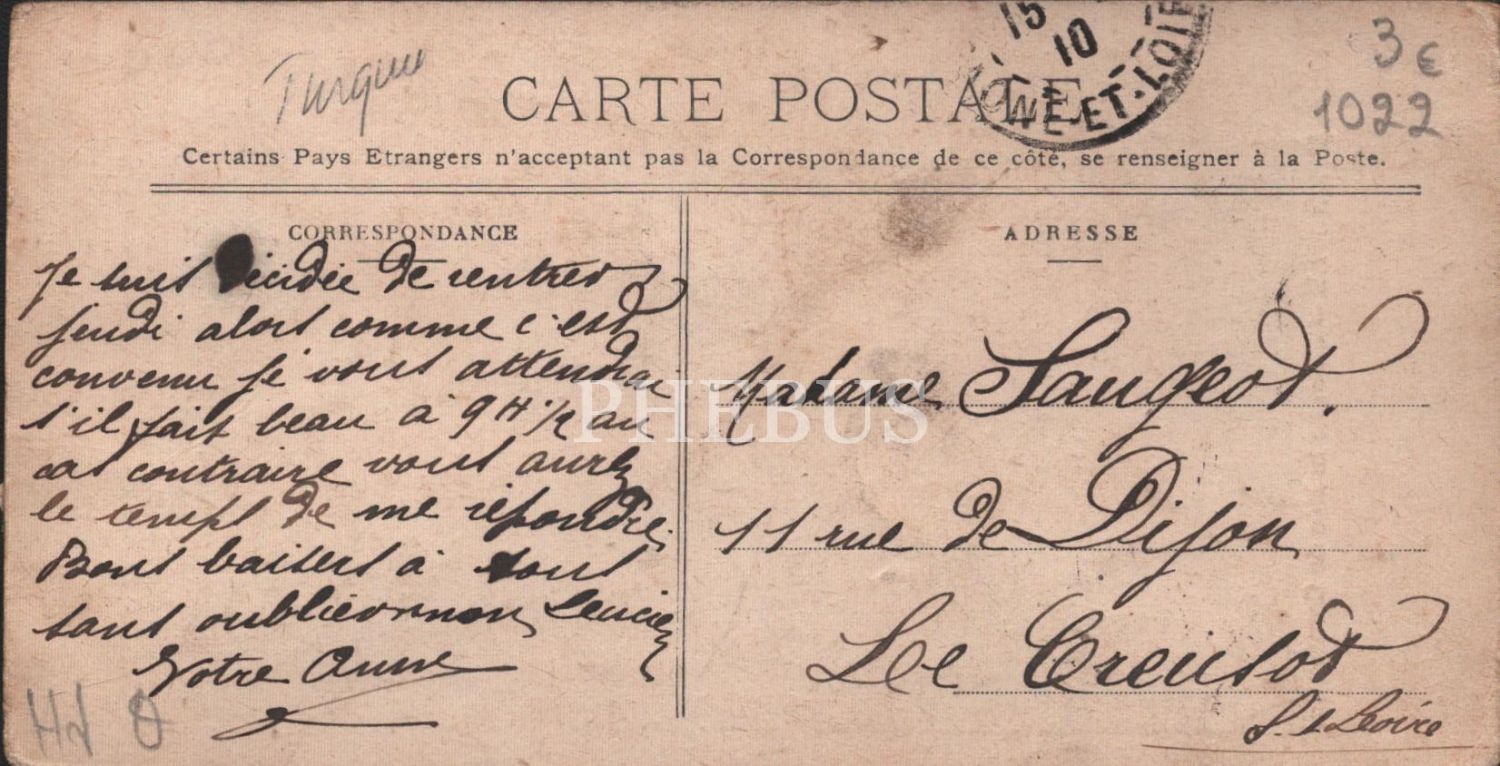 Turquie
CARTE POSTALE
15
10
ONE-ET-LOIR
3 €
1022
Certains Pays Etrangers n'acceptant pas la Correspondance de ce côté, se renseigner à la Poste.
CORRESPONDANCE
Je suis décidée de rentrer
jeudi alors comme c'est
convenu je vous attendrai
s'il fait beau à 9 H 1/2 au
cas contraire vous aurez
le temps de me répondre.
Bons baisers à tous
sans oublier mon Lucien
Votre Anne
ADRESSE
Madame Saugeot.
11 rue de Dijon
Le Creusot
S. & Loire
PHEBUS